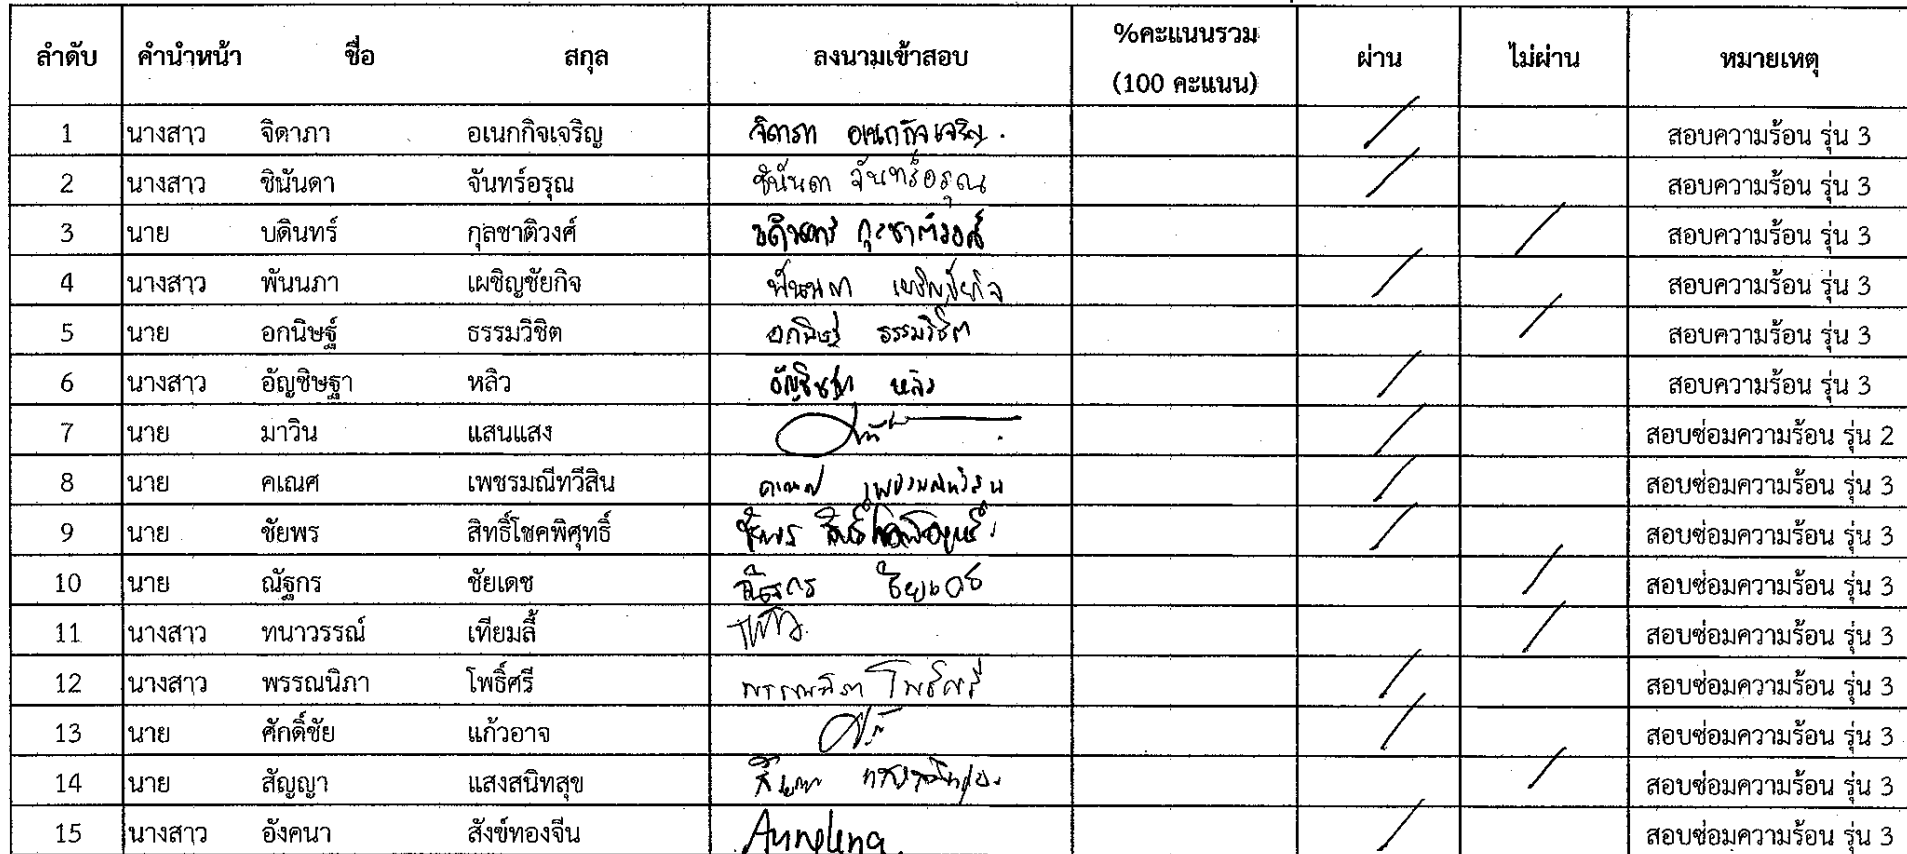 ลำดับ คำนำหน้า ชื่อ สกุล ลงนามเข้าสอบ %คะแนนรวม (100 คะแนน) ผ่าน ไม่ผ่าน หมายเหตุ
1 นางสาว จิดาภา อเนกกิจเจริญ จิดาภา อเนกกิจเจริญ / สอบความร้อน รุ่น 3
2 นางสาว ชินันดา จันทร์อรุณ ชินันดา จันทร์อรุณ / สอบความร้อน รุ่น 3
3 นาย บดินทร์ กุลชาติวงศ์ บดินทร์ กุลชาติวงศ์ / สอบความร้อน รุ่น 3
4 นางสาว พันนภา เผชิญชัยกิจ พันนภา เผชิญชัยกิจ / สอบความร้อน รุ่น 3
5 นาย อกนิษฐ์ ธรรมวิชิต อกนิษฐ์ ธรรมวิชิต / สอบความร้อน รุ่น 3
6 นางสาว อัญชิษฐา หลิว อัญชิษฐา หลิว / สอบความร้อน รุ่น 3
7 นาย มาวิน แสนแสง / สอบซ่อมความร้อน รุ่น 2
8 นาย คเณศ เพชรมณีทวีสิน คเณศ เพชรมณีทวีสิน / สอบซ่อมความร้อน รุ่น 3
9 นาย ชัยพร สิทธิ์โชคพิศุทธิ์ ชัยพร สิทธิ์โชคพิศุทธิ์ / สอบซ่อมความร้อน รุ่น 3
10 นาย ณัฐกร ชัยเดช ณัฐกร ชัยเดช / สอบซ่อมความร้อน รุ่น 3
11 นางสาว ทนาวรรณ์ เทียมลี้ / สอบซ่อมความร้อน รุ่น 3
12 นางสาว พรรณนิภา โพธิ์ศรี พรรณนิภา โพธิ์ศรี / สอบซ่อมความร้อน รุ่น 3
13 นาย ศักดิ์ชัย แก้วอาจ / สอบซ่อมความร้อน รุ่น 3
14 นาย สัญญา แสงสนิทสุข / สอบซ่อมความร้อน รุ่น 3
15 นางสาว อังคนา สังข์ทองจีน / สอบซ่อมความร้อน รุ่น 3